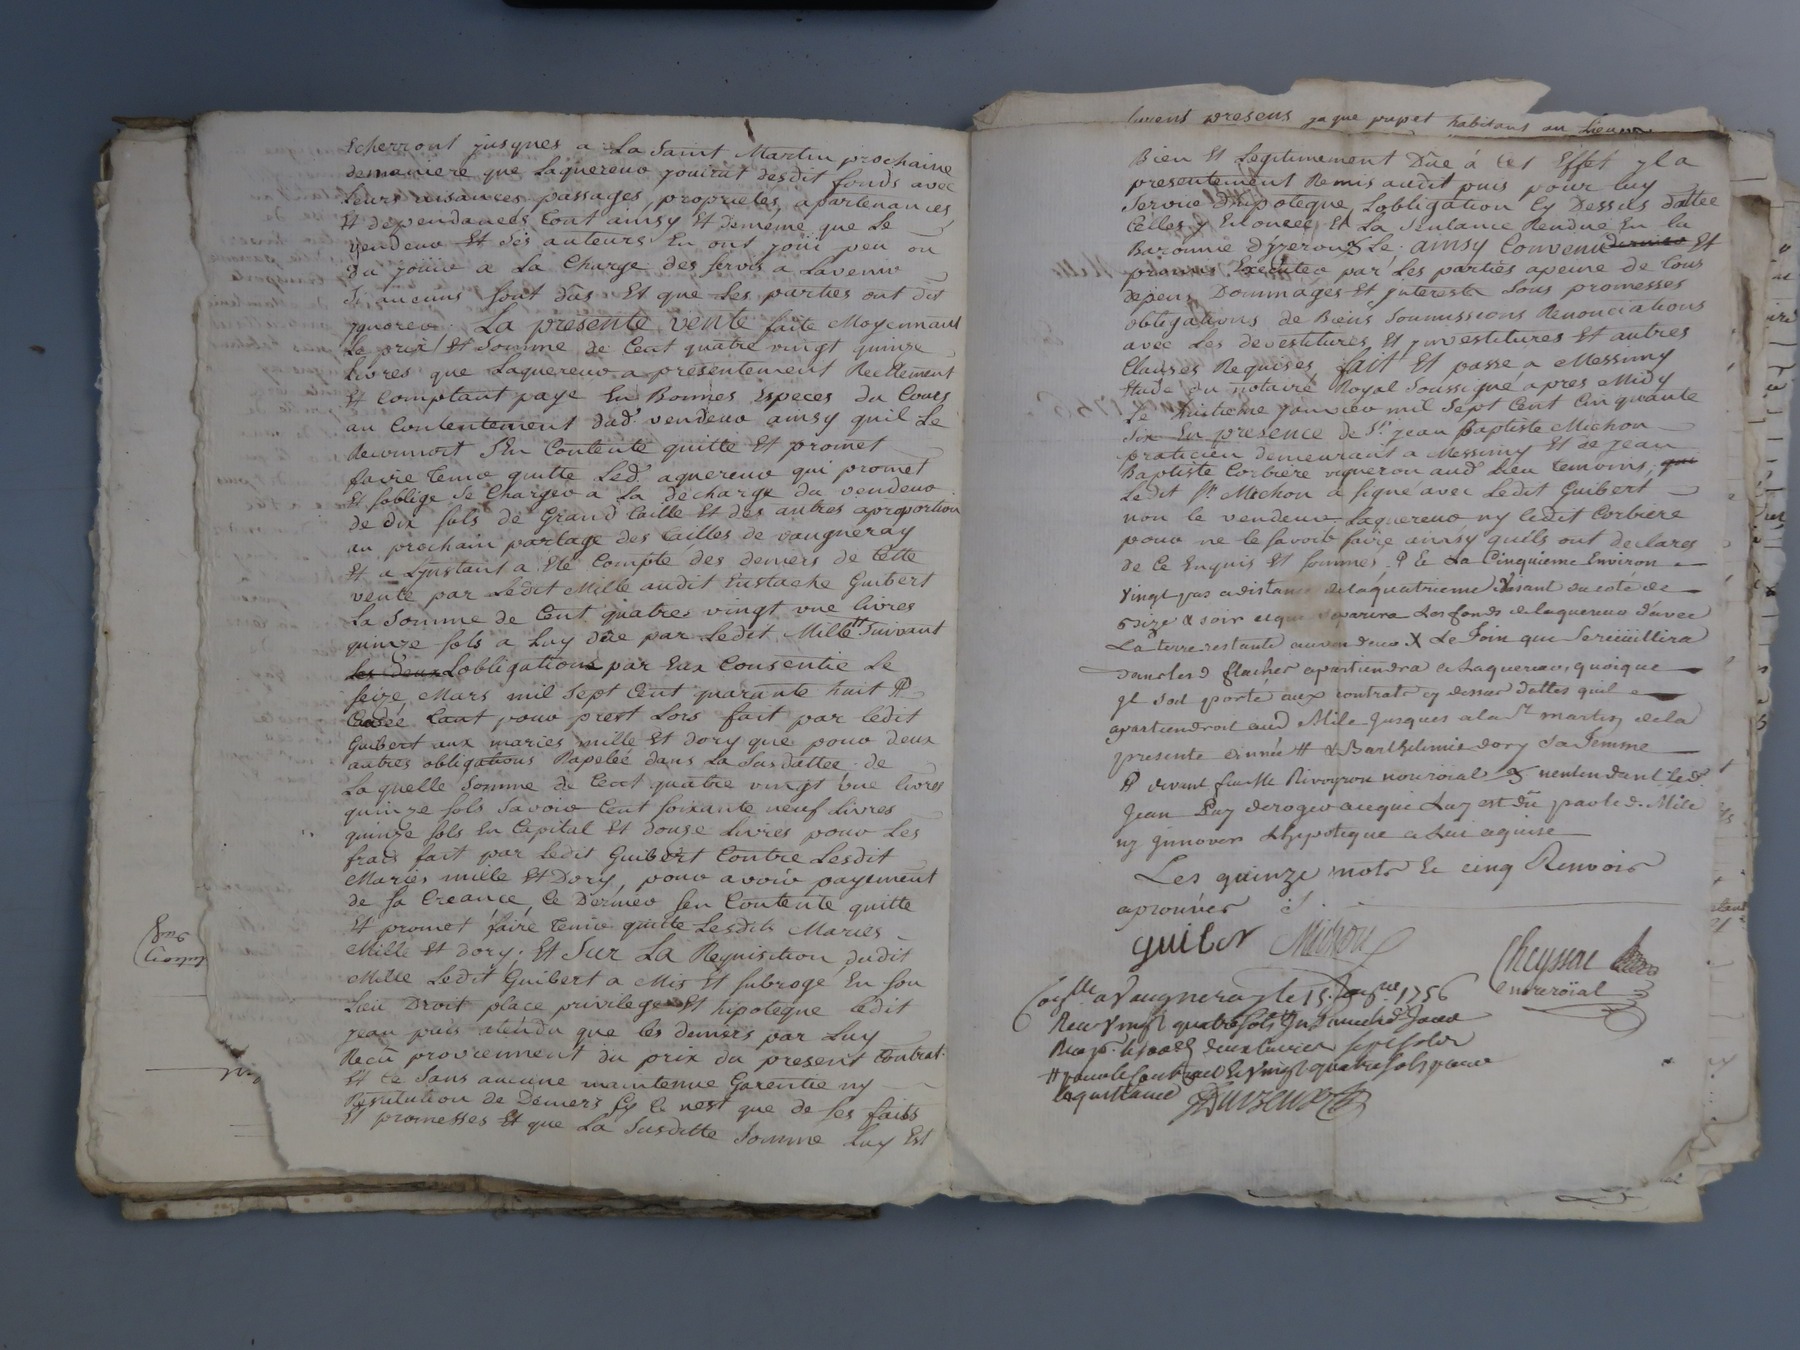 scherront jusques a La Saint Martin prochaine
demaniere que Laquereur jouirat desdit fonds avec
Leurs aisances passages, proprietes, apartenances
Et dependances tout ainsy Et demême que Le
vendeur Et ses auteurs En ont joüi peu ou
Dû joüir a La Charge des servis a Lavenir
Si aucuns sont dûs Et que Les parties ont dit
ygnorer. La presente vente faite Moyennant
Le prix Et Somme de Cent quatre vingt quinze
Livres que Laquereur a présentement Reellement
Et Comptant payé En Bonnes Especes du Cours
au Contentement dud. vendeur ainsy quil Le
Reconnoit S'En Contente quitte Et promet
faire tenir quitte Led. aquereur qui promet
Et soblige Se Charger a La décharge du vendeur
de dix sols de Grand taille Et des autres aproportion
au prochain partage des tailles de vaugneray
Et a Lynstant a Eté Compté des deniers de Cette
vente par Ledit Mille audit Eustache Guibert
La Somme de Cent quatre vingt une livres
quinze sols a Luy dûe par Ledit Mille # Suivant
les deux Lobligation par Eux Consentie Le
seize Mars mil sept Cent quarante huit
Causée tant pour prest Lors fait par ledit
Guibert aux mariés mille Et dory que pour deux
autres obligations Rapelée dans La Susdattée de
Laquelle Somme de Cent quatre vingt une livres
quinze sols Savoir Cent soixante neuf Livres
quinze sols En Capital Et douze Livres pour Les
frais fait par ledit Guibert Contre Lesdit
Mariés mille Et Dory, pour avoir payement
de sa Creance, Ce Dernier s'en Contente quitte
Et promet faire tenir quitte Lesdits Mariés
Mille Et dory; Et Sur La Requisition dudit
Mille Ledit Guibert a Mis Et subrogé En son
Lieu Droit place privilege Et hipoteque ledit
Jean puis atendu que les deniers par Luy
Reçu proviennent du prix du present Contrat
Et Ce Sans aucune maintenue Garentie ny
Restitution de Deniers Sy Ce nest que de ses faits
Et promesses Et que La Susditte Somme Luy Est
presens habitans au Lieu
Bien Et Legitimement Dûe á Cet Effet yl a
présentement Remis audit puis pour luy
servir D'hipoteque, Lobligation Cy Dessus dattée
Celles y Enoncée, Et La Sentance Rendue En la
Baronnie d'yzeron Le ainsy Convenu Et
promis Executer par Les parties apeine de tous
depens Dommages Et interests sous promesses
obligations de Biens Soumissions Renonciations
avec Les devestitures, Et ynvestitures Et autres
Clauses Requises, fait Et passé a Messimy
Etude du notaire Royal Soussigné apres Midy
Le huitieme janvier mil sept Cent Cinquante
six En presence de Sr. jean Baptiste Michon
praticien demeurant a Messimy Et de jean
Baptiste Corbiere vigneron aud. Lieu temoins, qui
Ledit Sr. Michon a signé avec Ledit Guibert
non le vendeur Laquereur ny ledit Corbiere
pour ne le savoir faire ainsy quils ont declarés
de Ce Enquis Et sommés. La Cinquieme Environ
vingt pas adistance de la quatrieme visant du coté de
& soir et qui separera Les fonds de laquereur d'avec
La terre restante au vendeur X Le Foin que se
dans les apartiendra a Laquereur, quoique
yl soit porté aux contrats cy dessus dattés quil
apartiendroit aud. Mile jusques a la St. martin de la
presente année # & Barthelemie dory sa femme
Rivoyron nott roïal n'entendant led.
Jean Puy deroger a ce qui Luy est dû par led. Mile
ny innover Lhipoteque a Lui aquise
Les quinze mots & cinq Renvois
aprouvés
guiber Michon
Cheyssac
not roïal
Conllé a Vaugneray le 15 Janvr. 1756
Reçu Vingt quatre sols
deux livres sept sols
pour le & Vingt quatre sols pour
la quittance